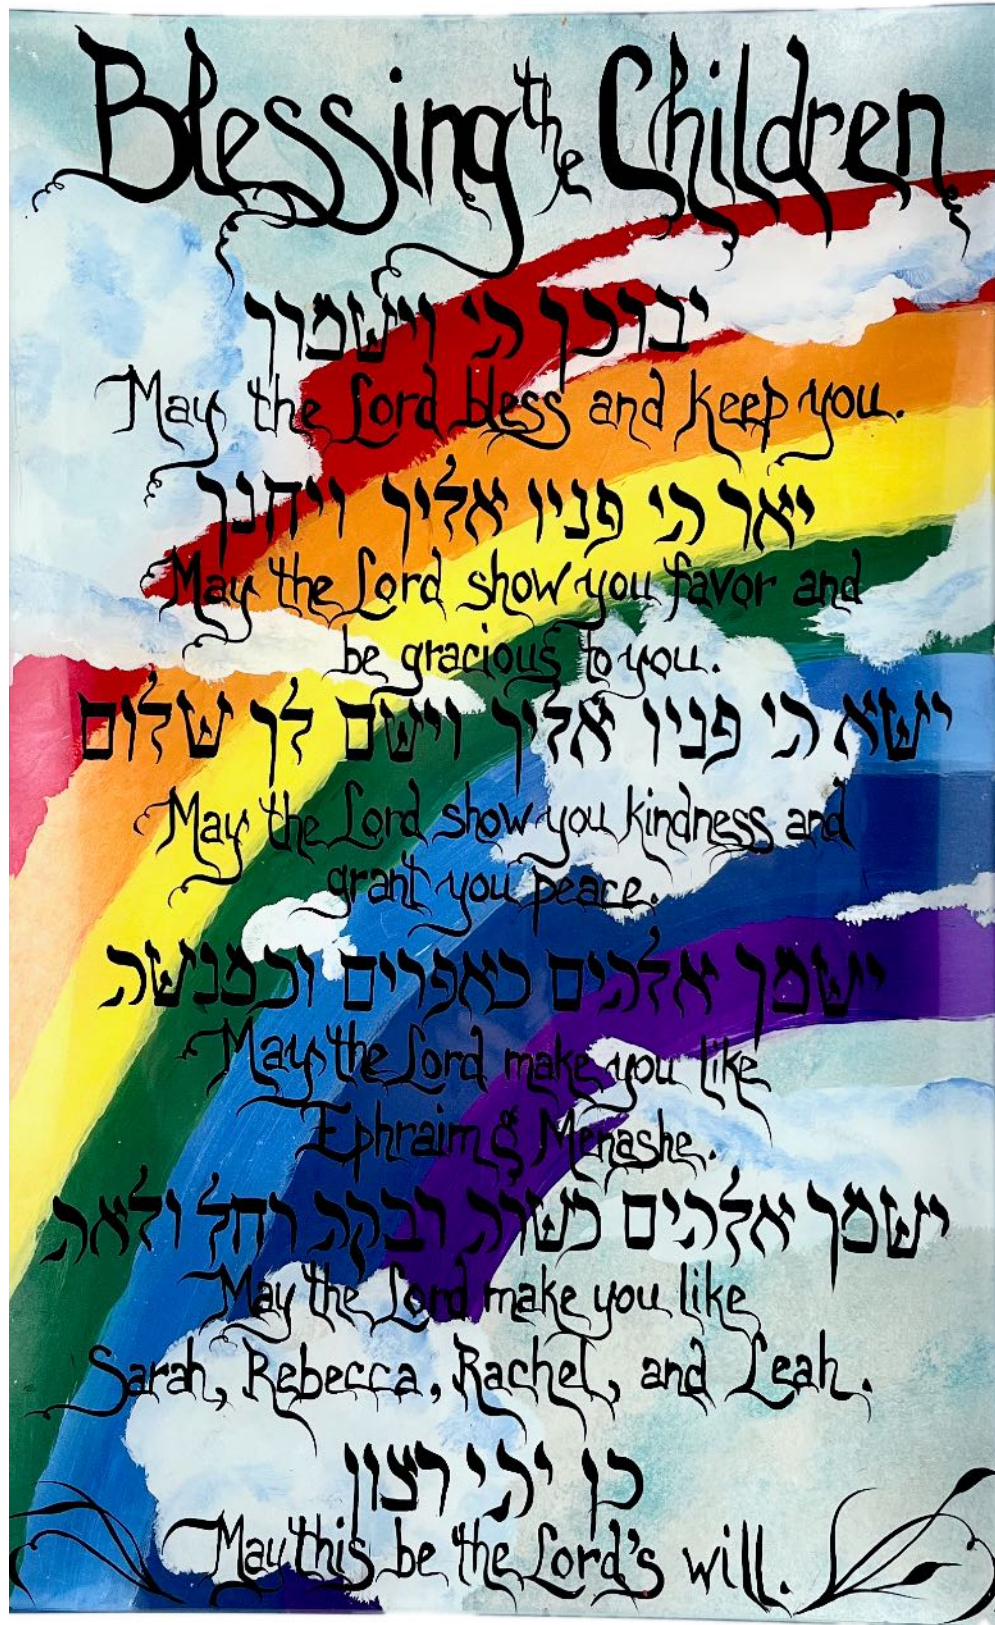 Blessing the Children
יברכך ה׳ וישמרך
May the Lord bless and keep you.
יאר ה׳ פניו אליך ויחנך
May the Lord show you favor and
be gracious to you.
ישא ה׳ פניו אליך וישם לך שלום
May the Lord show you kindness and
grant you peace.
ישמך אלהים כאפרים וכמנשה
May the Lord make you like
Ephraim & Menashe.
ישמך אלהים כשרה רבקה רחל ולאה
May the Lord make you like
Sarah, Rebecca, Rachel, and Leah.
כן יהי רצון
May this be the Lord's will.